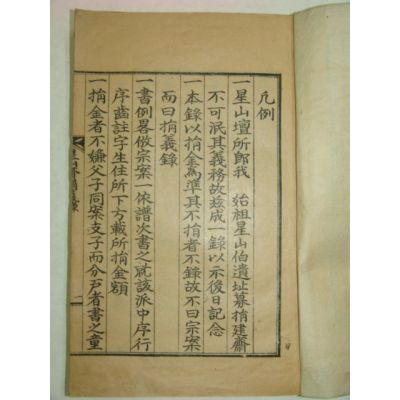 凡例
一星山壇所郎我　始祖星山伯遺址募捐建齋
不可泯其義務故玆成一錄以示後日記念
一本錄以捐金爲準其不捐者不錄故不曰宗案
而曰捐義錄
一書例畧倣宗案一依譜次書之就該派中序行
序齒註字生住所下方載所捐金額
一捐金者不嫌父子同案支子而分戶者書之童